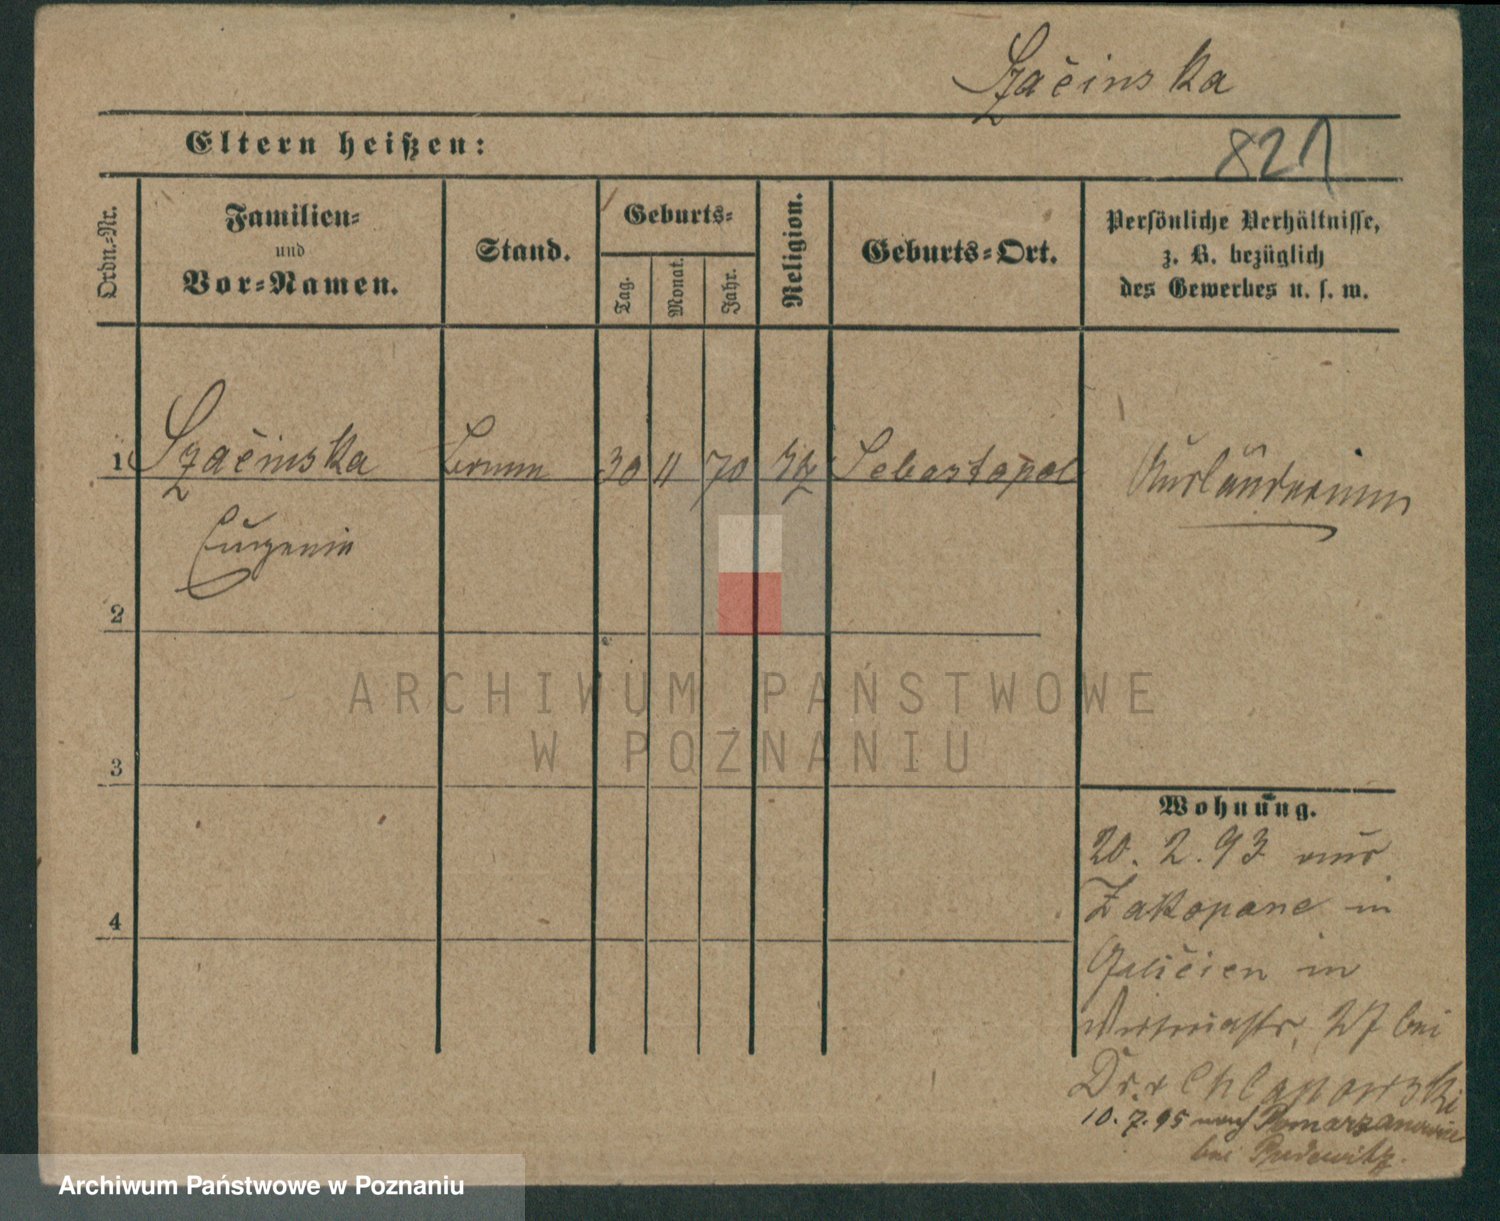 Szačinska
821
Eltern heißen:
Ordn.-Nr.
Familien-
und
Vor-Namen.
Stand.
Geburts-
Tag.
Monat.
Jahr.
Religion.
Geburts-Ort.
Persönliche Verhältnisse,
z. B. bezüglich
des Gewerbes u. s. w.
1 Szačinska 30 11 70 Sebastopol Ausländerin
Eugenie
2
3
4
Wohnung.
20. 2. 93 aus
Zakopane in
Galičien in
27 bei
Dr. v Chlapowski
10. 7. 95 nach Pomarzanowice
bei Pudewitz.
ARCHIWUM PAŃSTWOWE
W POZNANIU
Archiwum Państwowe w Poznaniu